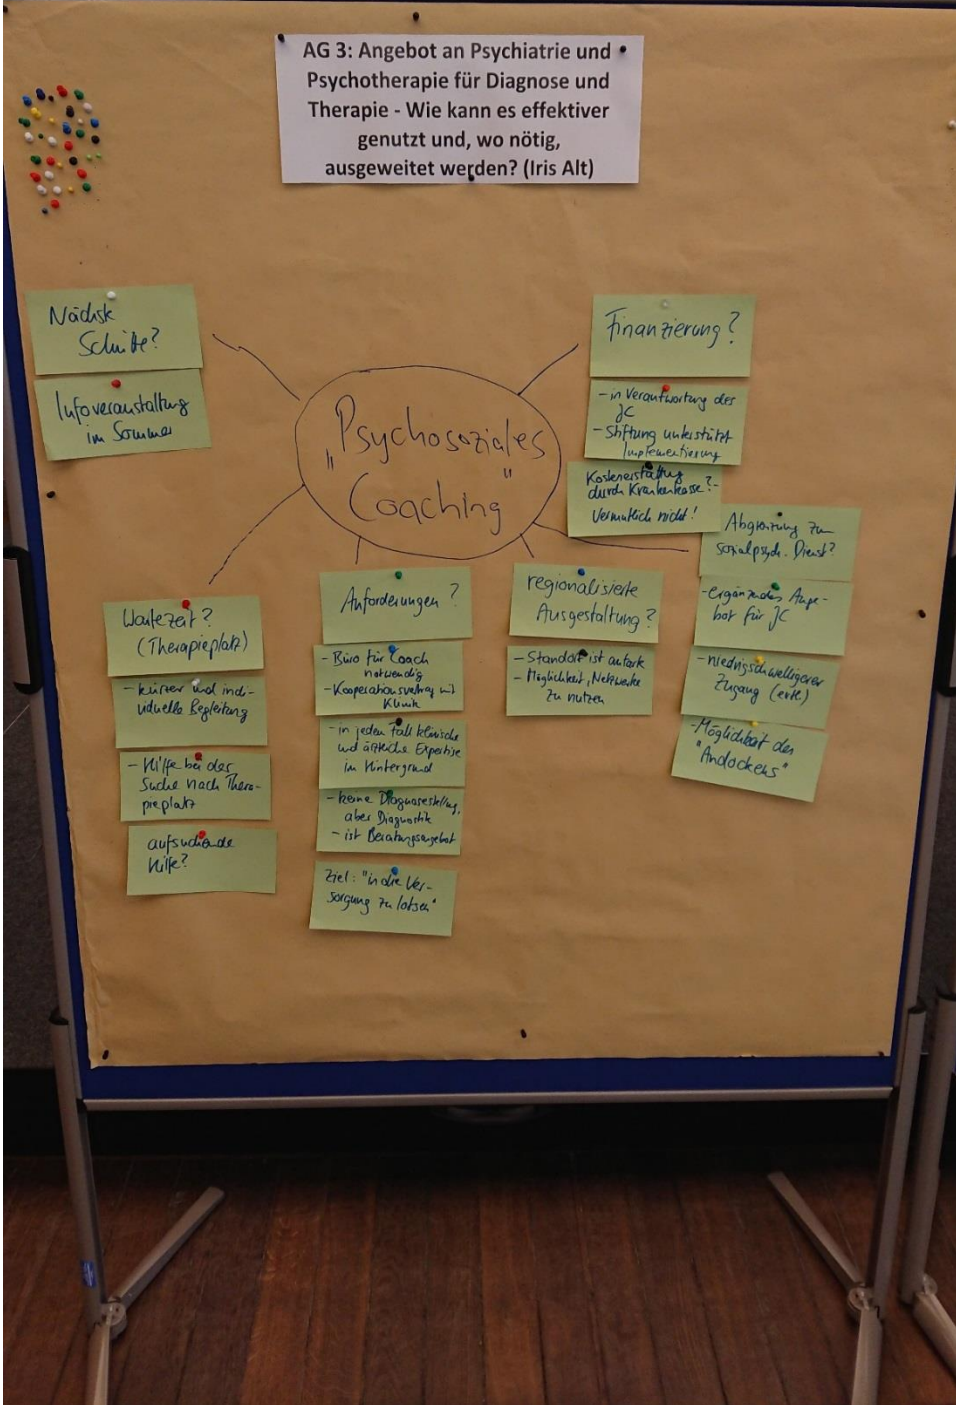 AG 3: Angebot an Psychiatrie und
Psychotherapie für Diagnose und
Therapie - Wie kann es effektiver
genutzt und, wo nötig,
ausgeweitet werden? (Iris Alt)
"Psychosoziales
Coaching"
Nächste
Schritte?
Infoveranstaltung
im Sommer
Finanzierung?
- in Verantwortung des
JC
- Stiftung unterstützt
Implementierung
Kostenerstattung
durch Krankenkasse? -
Vermutlich nicht!
Abgrenzung zum
sozialpsych. Dienst?
- ergänzendes Ange-
bot für JC
- niedrigschwelligerer
Zugang (evtl.)
- Möglichkeit des
"Andockens"
Wartezeit?
(Therapieplatz)
- kürzer und indi-
viduelle Begleitung
- Hilfe bei der
Suche nach Thera-
pieplatz
aufsuchende
Hilfe?
Anforderungen?
- Büro für Coach
notwendig
- Kooperationsvertrag mit
Klinik
- in jedem Fall klinische
und ärztliche Expertise
im Hintergrund
- keine Diagnosestellung,
aber Diagnostik
- ist Beratungsangebot
Ziel: "in die Ver-
sorgung zu lotsen"
regionalisierte
Ausgestaltung?
- Standort ist autark
- Möglichkeit, Netzwerke
zu nutzen